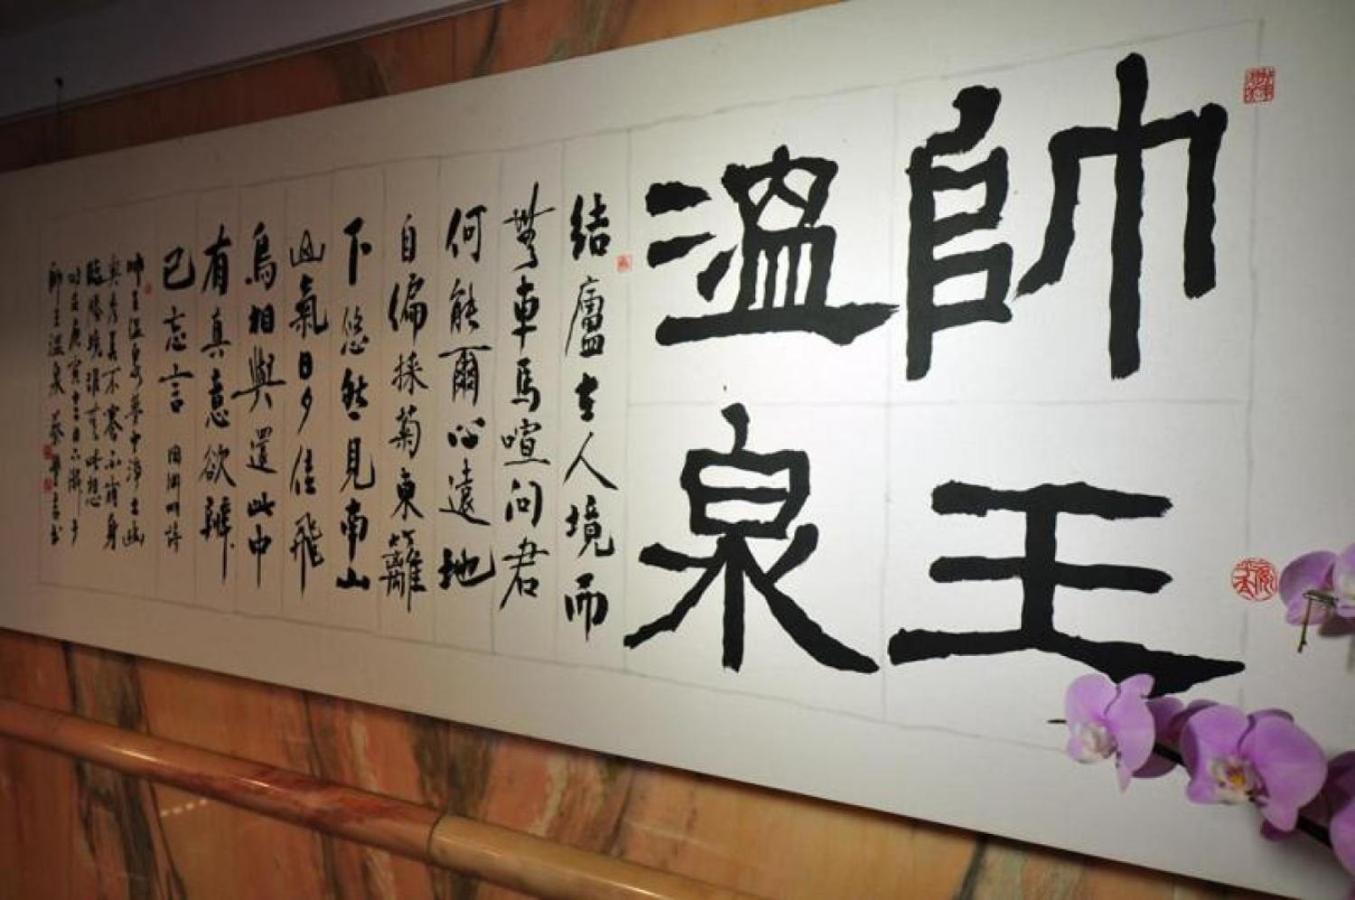 帥王
溫泉
結廬在人境而
無車馬喧問君
何能爾心遠地
自偏採菊東籬
下悠然見南山
山氣日夕佳飛
鳥相與還此中
有真意欲辨
已忘言 陶淵明詩
帥王溫泉
帥王溫泉